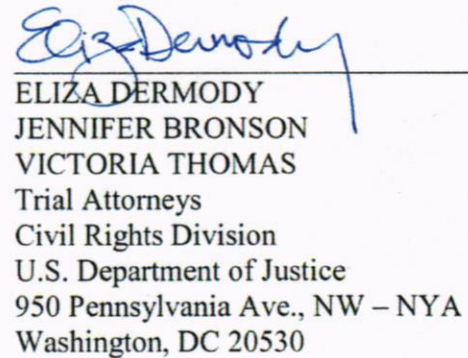 Eliza Dermody
ELIZA DERMODY
JENNIFER BRONSON
VICTORIA THOMAS
Trial Attorneys
Civil Rights Division
U.S. Department of Justice
950 Pennsylvania Ave., NW – NYA
Washington, DC 20530